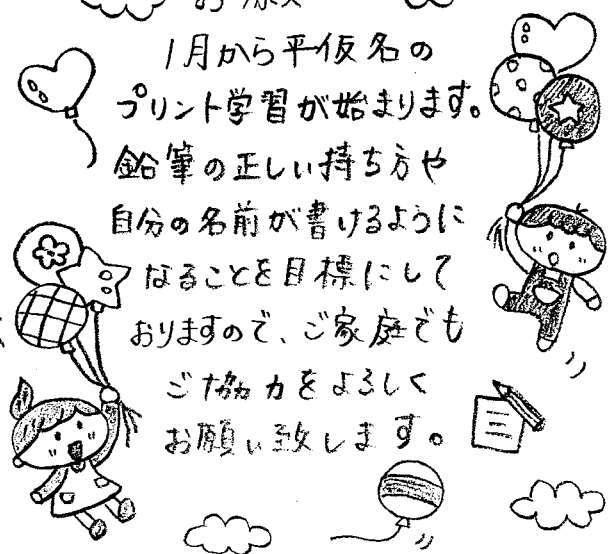 1月から平仮名の
プリント学習が始まります。
鉛筆の正しい持ち方や
自分の名前が書けるように
なることを目標にして
おりますので、ご家庭でも
ご協力をよろしく
お願い致します。